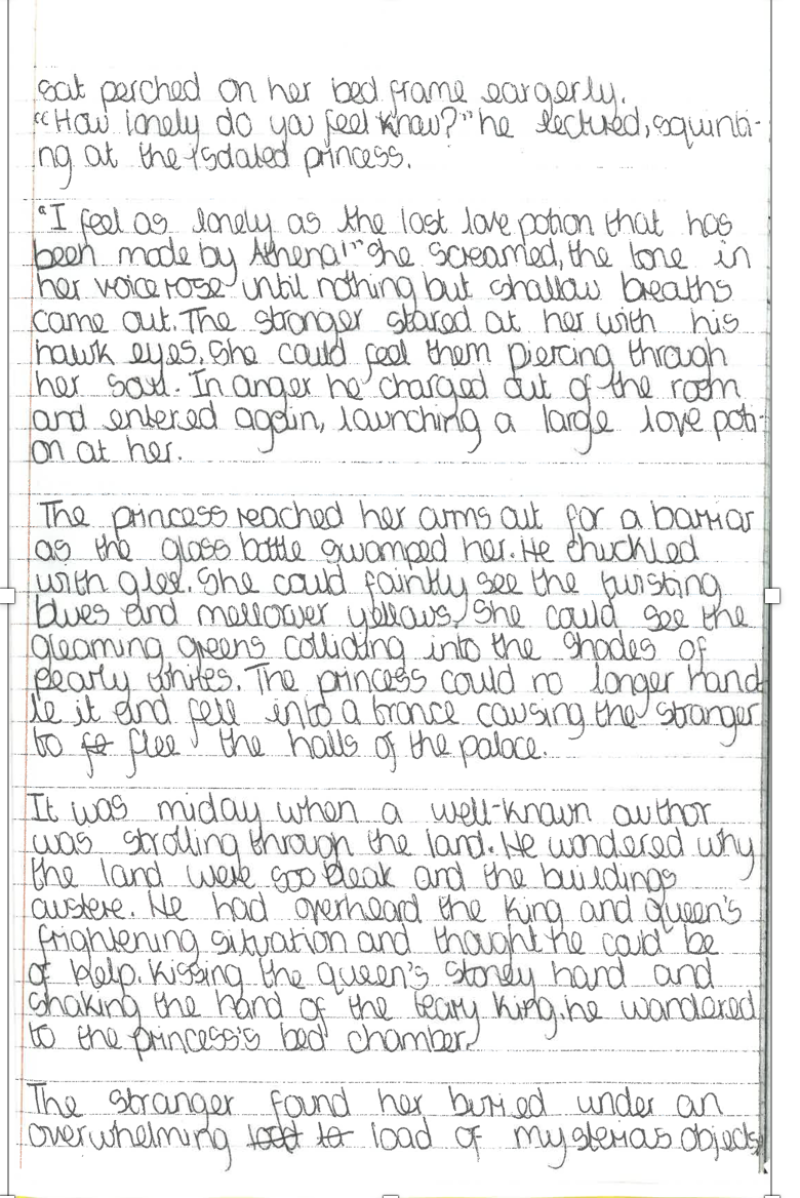 sat perched on her bed frame eargerly.
"How lonely do you feel know?" he lectured, squinti-
ng at the isolated princess.
"I feel as lonely as the last love potion that has
been made by Athena!" she screamed, the tone in
her voice rose until nothing but shallow breaths
came out. The stranger stared at her with his
hawk eyes. She could feel them piercing through
her soul. In anger he charged out of the room
and entered again, launching a large love poti-
on at her.
The princess reached her arms out for a barriar
as the glass bottle swamped her. He chuckled
with glee. She could faintly see the twisting
blues and mellower yellows, She could see the
gleaming greens colliding into the shades of
pearly whites. The princess could no longer hand
le it and fell into a trance causing the stranger
to flee the halls of the palace.
It was miday when a well-known author
was strolling through the land. He wondered why
the land were soo bleak and the buildings
austere. He had overheard the King and queen's
frightening situation and thought he could be
of help. Kissing the queen's stoney hand and
shaking the hand of the teary King, he wandered
to the princess's bed chamber.
The stranger found her burried under an
overwhelming load of mysterias objects,